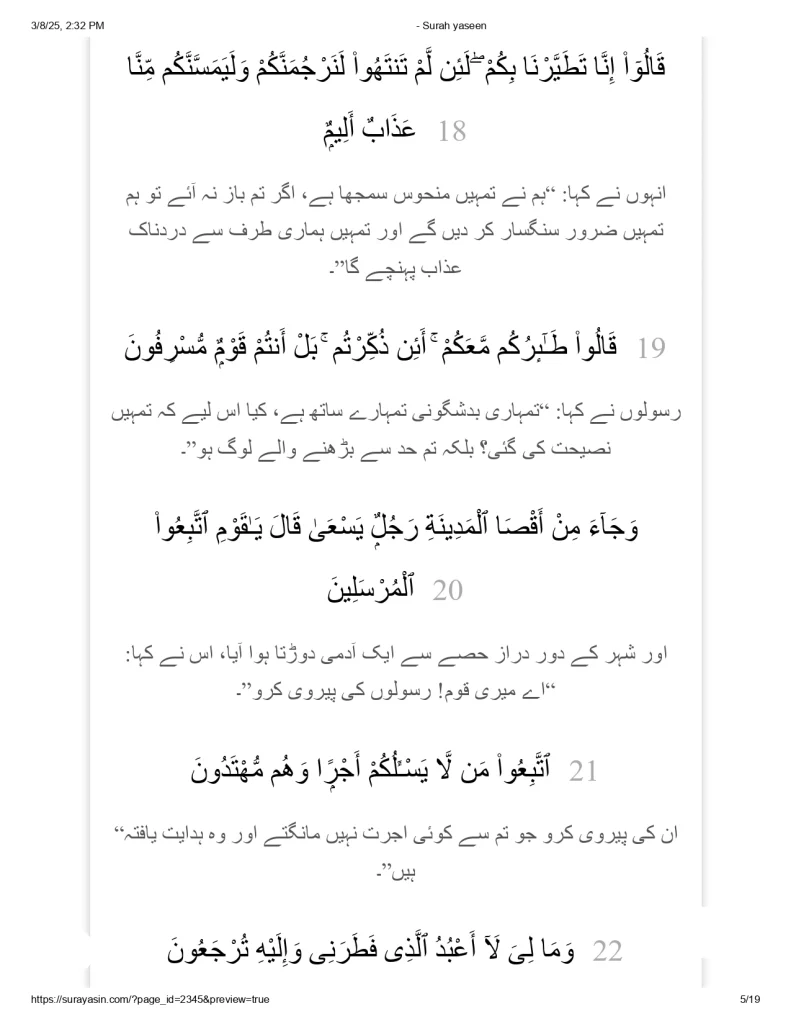 3/8/25, 2:32 PM
- Surah yaseen
قَالُوٓاْ إِنَّا تَطَيَّرْنَا بِكُمْ ۖ لَئِن لَّمْ تَنتَهُواْ لَنَرْجُمَنَّكُمْ وَلَيَمَسَّنَّكُم مِّنَّا
عَذَابٌ أَلِيمٌۭ 18
انہوں نے کہا: “ہم نے تمہیں منحوس سمجھا ہے، اگر تم باز نہ آئے تو ہم
تمہیں ضرور سنگسار کر دیں گے اور تمہیں ہماری طرف سے دردناک
عذاب پہنچے گا”۔
19 قَالُواْ طَـٰٓئِرُكُم مَّعَكُمْ ۚ أَئِن ذُكِّرْتُم ۚ بَلْ أَنتُمْ قَوْمٌۭ مُّسْرِفُونَ
رسولوں نے کہا: “تمہاری بدشگونی تمہارے ساتھ ہے، کیا اس لیے کہ تمہیں
نصیحت کی گئی؟ بلکہ تم حد سے بڑھنے والے لوگ ہو”۔
وَجَآءَ مِنْ أَقْصَا ٱلْمَدِينَةِ رَجُلٌۭ يَسْعَىٰ قَالَ يَـٰقَوْمِ ٱتَّبِعُواْ
ٱلْمُرْسَلِينَ 20
اور شہر کے دور دراز حصے سے ایک آدمی دوڑتا ہوا آیا، اس نے کہا:
“اے میری قوم! رسولوں کی پیروی کرو”۔
21 ٱتَّبِعُواْ مَن لَّا يَسْـَٔلُكُمْ أَجْرًۭا وَهُم مُّهْتَدُونَ
ان کی پیروی کرو جو تم سے کوئی اجرت نہیں مانگتے اور وہ ہدایت یافتہ“
ہیں”۔
22 وَمَا لِىَ لَآ أَعْبُدُ ٱلَّذِى فَطَرَنِى وَإِلَيْهِ تُرْجَعُونَ
https://surayasin.com/?page_id=2345&preview=true
5/19